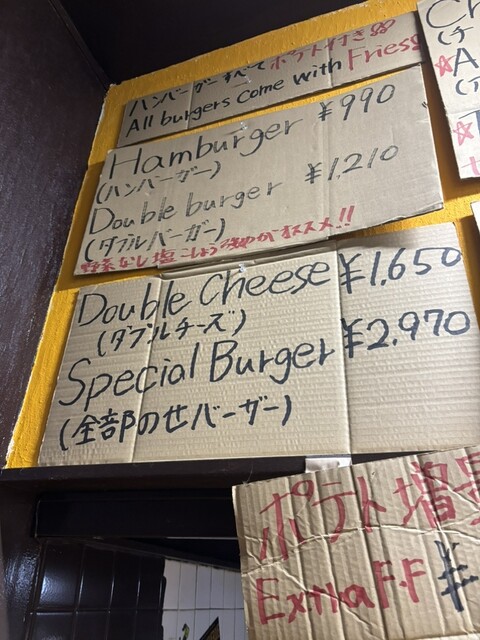 ハンバーガーすべてポテト付き
All burgers come with Friess
Hamburger ¥990
(ハンバーガー)
Double burger ¥1,210
(ダブルバーガー)
野菜なし塩こしょう強めがオススメ!!
Double Cheese ¥1,650
(ダブルチーズ)
Special Burger ¥2,970
(全部のせバーガー)
Ch
(チ
☆A
(ア
☆
ポテト増量
Extra F.F ¥